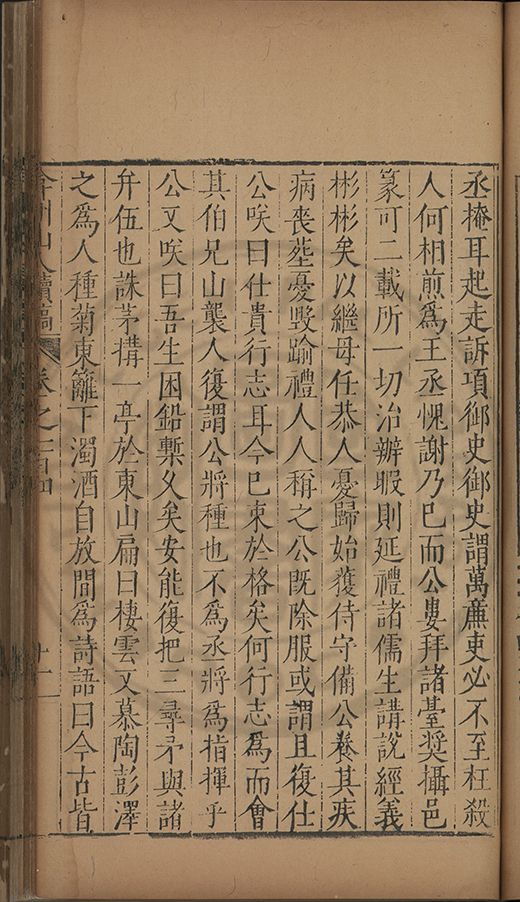 丞掩耳起走訴項御史御史謂萬廉吏必不至枉殺
人何相煎為王丞愧謝乃已而公婁拜諸臺奨攝邑
篆可二載所一切治辦暇則延禮諸儒生講說經義
彬彬矣以繼母任恭人憂歸始獲侍守備公養其疾
病喪塟憂毀踰禮人人稱之公既除服或謂且復仕
公咲曰仕貴行志耳今已束於格矣何行志為而會
其伯兄山襲人復謂公將種也不為丞將為指揮乎
公又咲曰吾生困鉛槧久矣安能復把三尋矛與諸
弁伍也誅茅搆一亭於東山扁曰棲雲又慕陶彭澤
之為人種菊東籬下濁酒自放間為詩語曰今古皆
弇州山人續稿 卷之一百四 十一